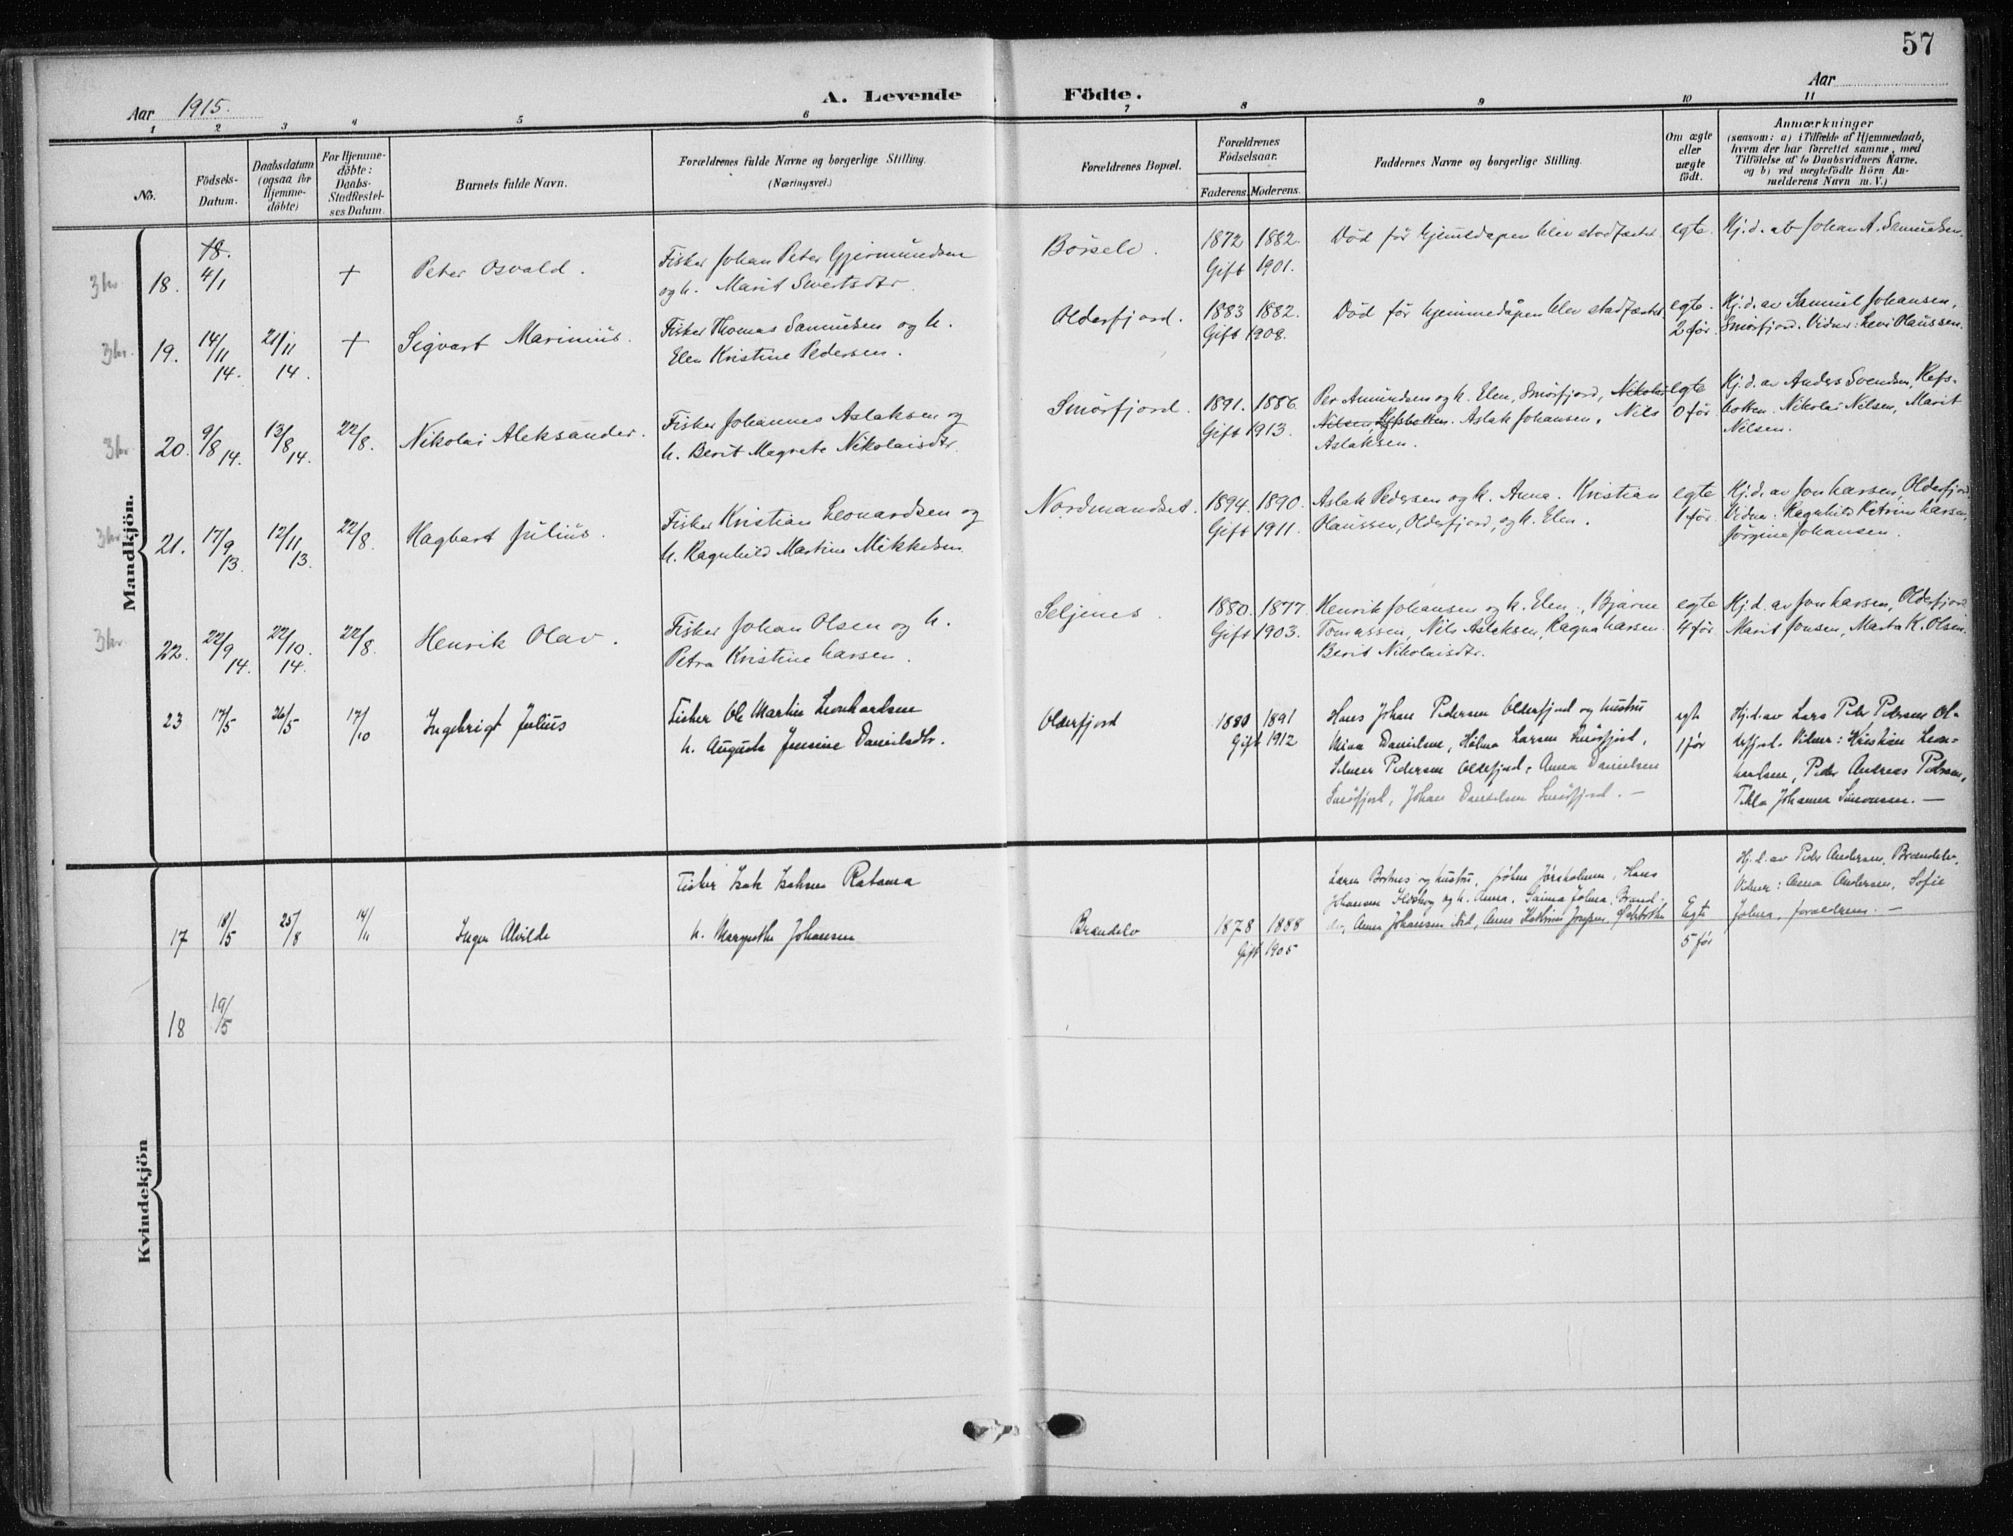 57
Aar 1915.
A. Levende Födte.
Aar
1 2 3 4 5 6 7 8 9 10 11
No.
Födsels-
Datum.
Daabsdatum
(ogsaa for
Hjemme-
döbte)
For Hjemme-
döbte:
Daabs-
Stadfæstel-
ses Datum.
Barnets fulde Navn.
Forældrenes fulde Navne og borgerlige Stilling.
(Næringsvei.)
Forældrenes Bopæl.
Forældrenes
Födselsaar.
Faderens. Moderens.
Faddernes Navne og borgerlige Stilling.
Om ægte
eller
uægte
födt.
Anmærkninger
(saasom: a) i Tilfælde af Hjemmedaab,
hvem der har forrettet samme, med
Tilföielse af to Daabsvidners Navne.
og b) ved uægtefödte Börn An-
melderens Navn m. V.)
Mandkjön.
18. 4/1 + Peter Osvald.
Fisker Johan Peter Gjermundsen
og h. Marit Sivertsdtr.
Börselv. 1872 1882.
Gift 1901.
Död før hjemedåpen blev stadfæstet
egte.
Hj. d. ab Johan A. Samuelsen.
3 kr. 19. 14/11 14. 21/11 14. + Sigvart Marinius.
Fisker Thomas Samuelsen og h.
Elen Kristine Pedersen.
Olderfjord. 1883 1882.
Gift 1908.
Död før hjemmedåpen blev stadfæstet
egte.
2 før
Hj. d. av Samuel Johansen,
Smørfjord. Vidner: Levi Olaussen.
3 kr 20. 9/8 14. 13/8 14. 22/8. Nikolai Aleksander.
Fisker Johannes Aslaksen og
h. Berit Magrete Nikolaisdtr.
Smørfjord. 1891. 1886.
Gift 1913.
Per Amundsen og h. Elen, Smørfjord, Nikolai
Nilsen, Refsbotten. Aslak Johansen, Nils
Aslaksen.
egte
0 før
Hj. d. av Anders Svendsen, Refs-
botten. Nikolai Nilsen, Marit
Nilsen.
3 kr 21. 17/9 13. 12/11 13. 22/8. Hagbart Julius.
Fisker Kristian Leonardsen og
h. Ragnhild Martine Mikkelsen
Nordmandset. 1894. 1890.
Gift 1911.
Aslak Pedersen og h. Anna. Kristian
Olaussen, Olderfjord, og h. Elen.
egte
1 før.
Hj. d. av Jon Larsen, Olderfjord
Vidner: Ragnhild Katrine Larsen,
Jørgine Johansen.
3 kr 22. 22/9 14. 22/10. 14. 22/8. Henrik Olav.
Fisker Johan Olsen og h.
Petra Kristine Larsen.
Seljenes. 1880. 1877.
Gift 1903.
Henrik Johansen og h. Elen., Bjarne
Tomassen, Nils Aslaksen, Ragna Larsen
Berit Nikolaisdtr.
egte
4 før
Hj. d. av Jon Larsen, Olderfjord
Marit Jonsen, Marta K. Olsen.
23 17/5 26/5 17/10 Ingebrigt Julius
Fisker Ole Martin Leonhardsen
h. Augusta Jensine Danielsdtr.
Olderfjord 1880 1891
Gift 1912
Hans Johan Pedersen Olderfjord og hustru
Mina Danielsen, Helma Larsen Smørfjord,
Pedersen Olderfjord, Anna Danielsen
Smørfjord, Johan Danielsen Smørfjord. —
egte
1 før
Hj. d. av Lars Peder Pedersen Ol-
derfjord. Vidner: Kristian Leon-
hardsen, Peder Andreas Pedersen,
Tekla Johanna Simonsen. —
Kvindekjön
17 18/5 25/8 14/11 Inger Alvilde
Fisker Isak Isaksen Ratama
h. Margrethe Johansen
Brændelv 1878 1888
Gift 1905
og hustru, Hans
Johansen og h. Anna, Brænd-
elv, Anna Johansen Anna Kathrine
Egte
5 før
Hj. d. av Peder Andersen, Brændelv.
Vidner: Anna Andersen, Sofie
forældrene. —
18 19/5